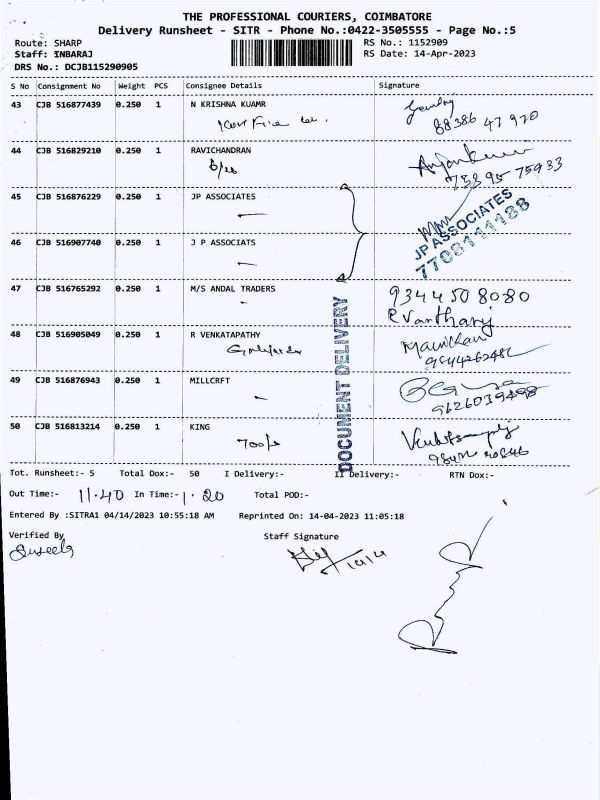 THE PROFESSIONAL COURIERS, COIMBATORE
Delivery Runsheet - SITR - Phone No.:0422-3505555 - Page No.:5
Route: SHARP
RS No.: 1152909
Staff: INBARAJ
RS Date: 14-Apr-2023
DRS No.: DCJB115290905
S No Consignment No Weight PCS Consignee Details Signature
43 CJB 516877439 0.250 1 N KRISHNA KUAMR
88386 47970
44 CJB 516829210 0.250 1 RAVICHANDRAN
73395 75933
45 CJB 516876229 0.250 1 JP ASSOCIATES
JP ASSOCIATES
7708111188
46 CJB 516907740 0.250 1 J P ASSOCIATS
47 CJB 516765292 0.250 1 M/S ANDAL TRADERS
9344508080
48 CJB 516905049 0.250 1 R VENKATAPATHY
49 CJB 516876943 0.250 1 MILLCRFT
9626039498
50 CJB 516813214 0.250 1 KING
DOCUMENT DELIVERY
Tot. Runsheet:- 5 Total Dox:- 50 I Delivery:- II Delivery:- RTN Dox:-
Out Time:- 11.40 In Time:- 1.20 Total POD:-
Entered By :SITRA1 04/14/2023 10:55:18 AM Reprinted On: 14-04-2023 11:05:18
Verified By
Staff Signature
Suseela